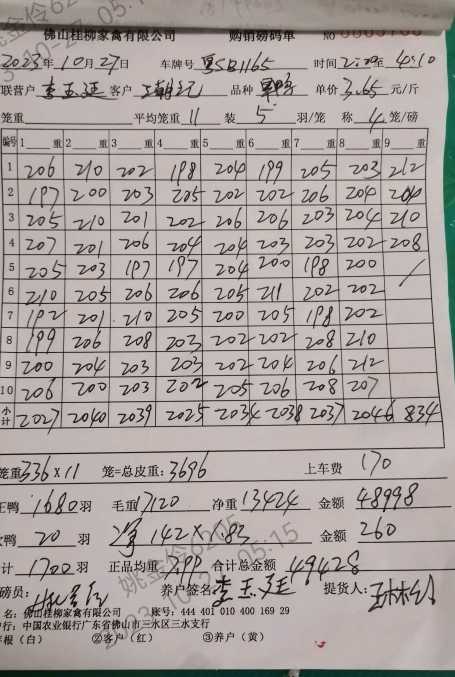 佛山桂柳家禽有限公司 购销磅码单 No
2023年10月27日 车牌号 粤SB1165 时间2:20至4:10
联营户 李玉廷 客户 品种 单价3.65元/斤
笼重 平均笼重 11 装 5 羽/笼 称 4 笼/磅
编号 1 重 2 重 3 重 4 重 5 重 6 重 7 重 8 重 9 重
1 206 210 202 198 204 199 205 203 212
2 197 200 203 205 202 202 206 204 204
3 205 210 201 202 206 206 203 204 210
4 207 201 206 204 204 203 203 202 208
5 205 203 197 197 204 200 198 200
6 210 205 206 206 205 211 202 202
7 192 201 210 205 200 205 198 202
8 199 206 208 203 202 202 208 210
9 200 204 203 203 202 204 206 212
10 206 200 203 202 205 206 208 207
小计 2027 2040 2039 2025 2034 2038 2037 2046 834
笼重 336×11 笼=总皮重: 3696 上车费 170
正鸭 1680 羽 毛重 17120 净重 13424 金额 48998
次鸭 20 羽 净 142×1.83 金额 260
计 1700 羽 正品均重 7.99 合计总金额 49428
磅员: 养户签名: 李玉廷 提货人:
名: 佛山桂柳家禽有限公司 账号: 444 401 010 400 169 29
行: 中国农业银行广东省佛山市三水区三水支行
存根（白） ②客户（红） ③养户（黄）
姚金伶6205
2023-10-27 05:15